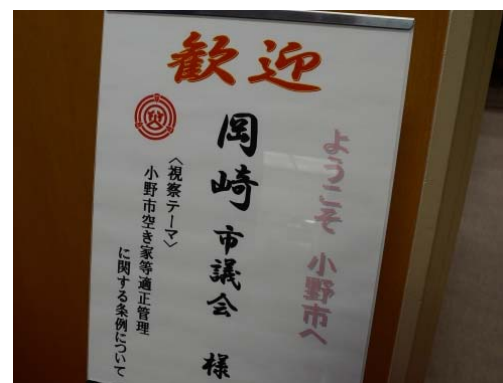 歓迎
ようこそ 小野市へ
岡崎市議会 様
〈視察テーマ〉
小野市空き家等適正管理
に関する条例について